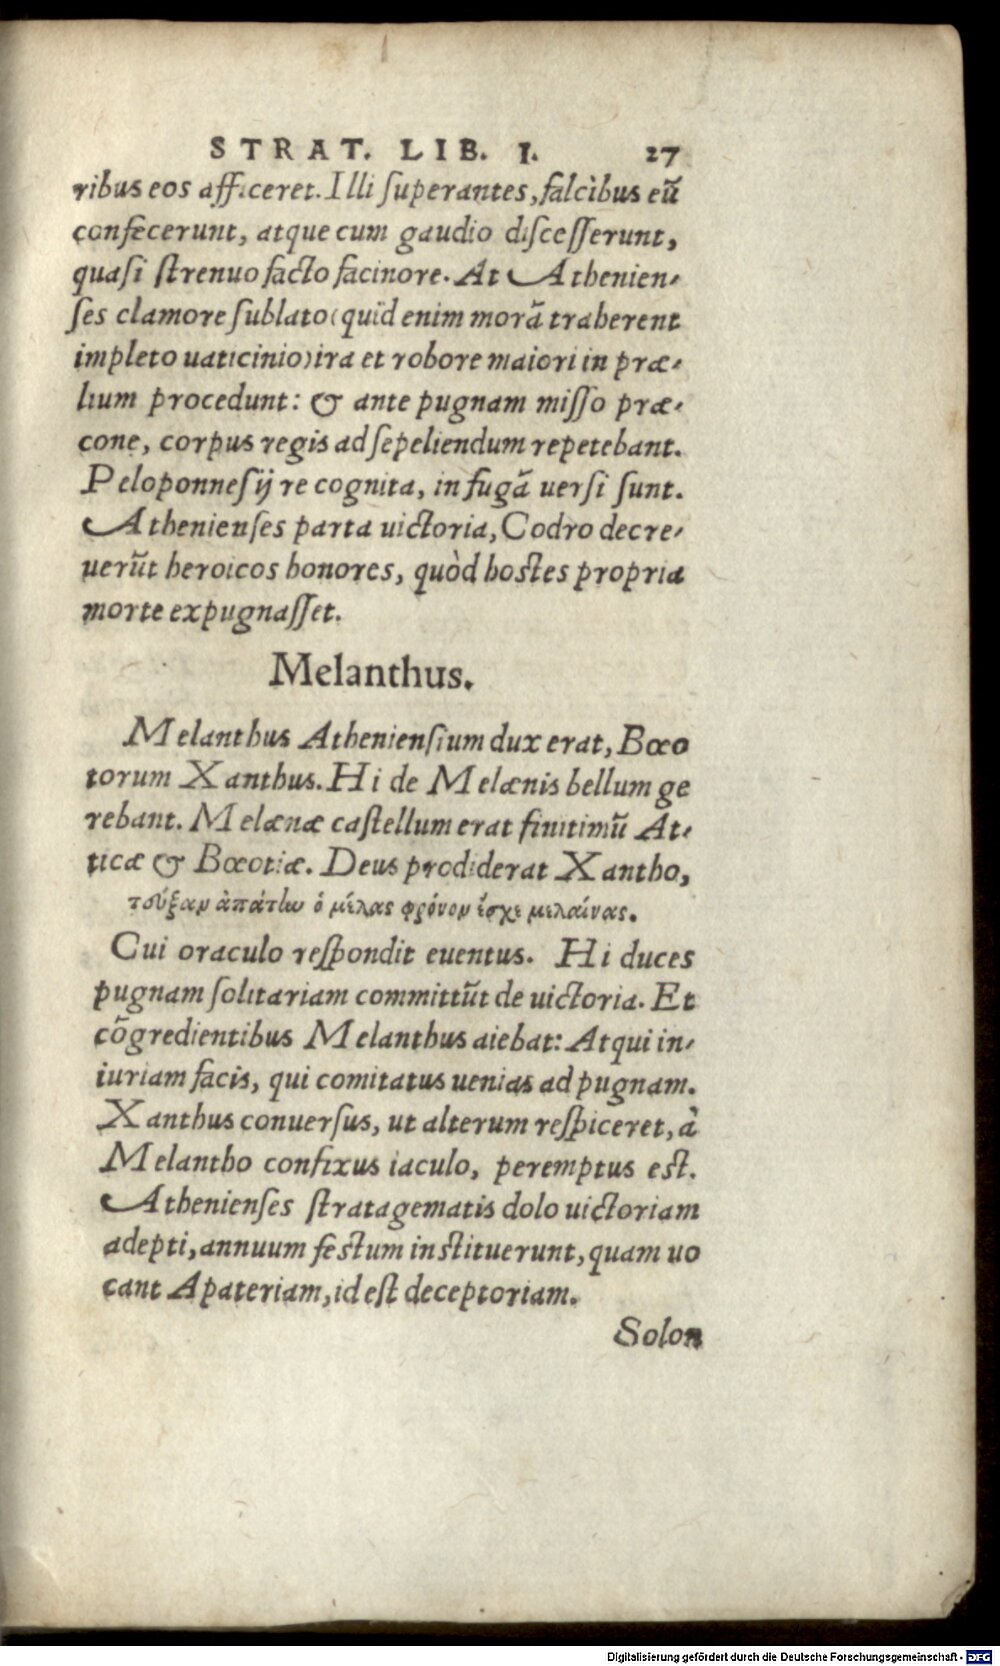 STRAT. LIB. I. 27
ribus eos afficeret. Illi ſuperantes, falcibus eũ
confecerunt, atque cum gaudio diſceſſerunt,
quaſi ſtrenuo facto facinore. At Athenien-
ſes clamore ſublato (quid enim morã traherent
impleto uaticinio) ira et robore maiori in præ-
lium procedunt: & ante pugnam miſſo præ-
cone, corpus regis ad ſepeliendum repetebant.
Peloponneſij re cognita, in fugã uerſi ſunt.
Athenienſes parta uictoria, Codro decre-
uerũt heroicos honores, quòd hoſtes propria
morte expugnaſſet.
Melanthus.
Melanthus Athenienſium dux erat, Bœo
torum Xanthus. Hi de Melænis bellum ge
rebant. Melænæ caſtellum erat finitimũ At-
ticæ & Bœotiæ. Deus prodiderat Xantho,
τούξαν ἀπάτίω ὁ μέλας φρόνον ἔσχε μελαίνας.
Cui oraculo reſpondit euentus. Hi duces
pugnam ſolitariam committũt de uictoria. Et
cõgredientibus Melanthus aiebat: Atqui in-
iuriam facis, qui comitatus uenias ad pugnam.
Xanthus conuerſus, ut alterum reſpiceret, à
Melantho confixus iaculo, peremptus eſt.
Athenienſes ſtratagematis dolo uictoriam
adepti, annuum feſtum inſtituerunt, quam uo
cant Apateriam, id eſt deceptoriam.
Solon
Digitalisierung gefördert durch die Deutsche Forschungsgemeinschaft - DFG